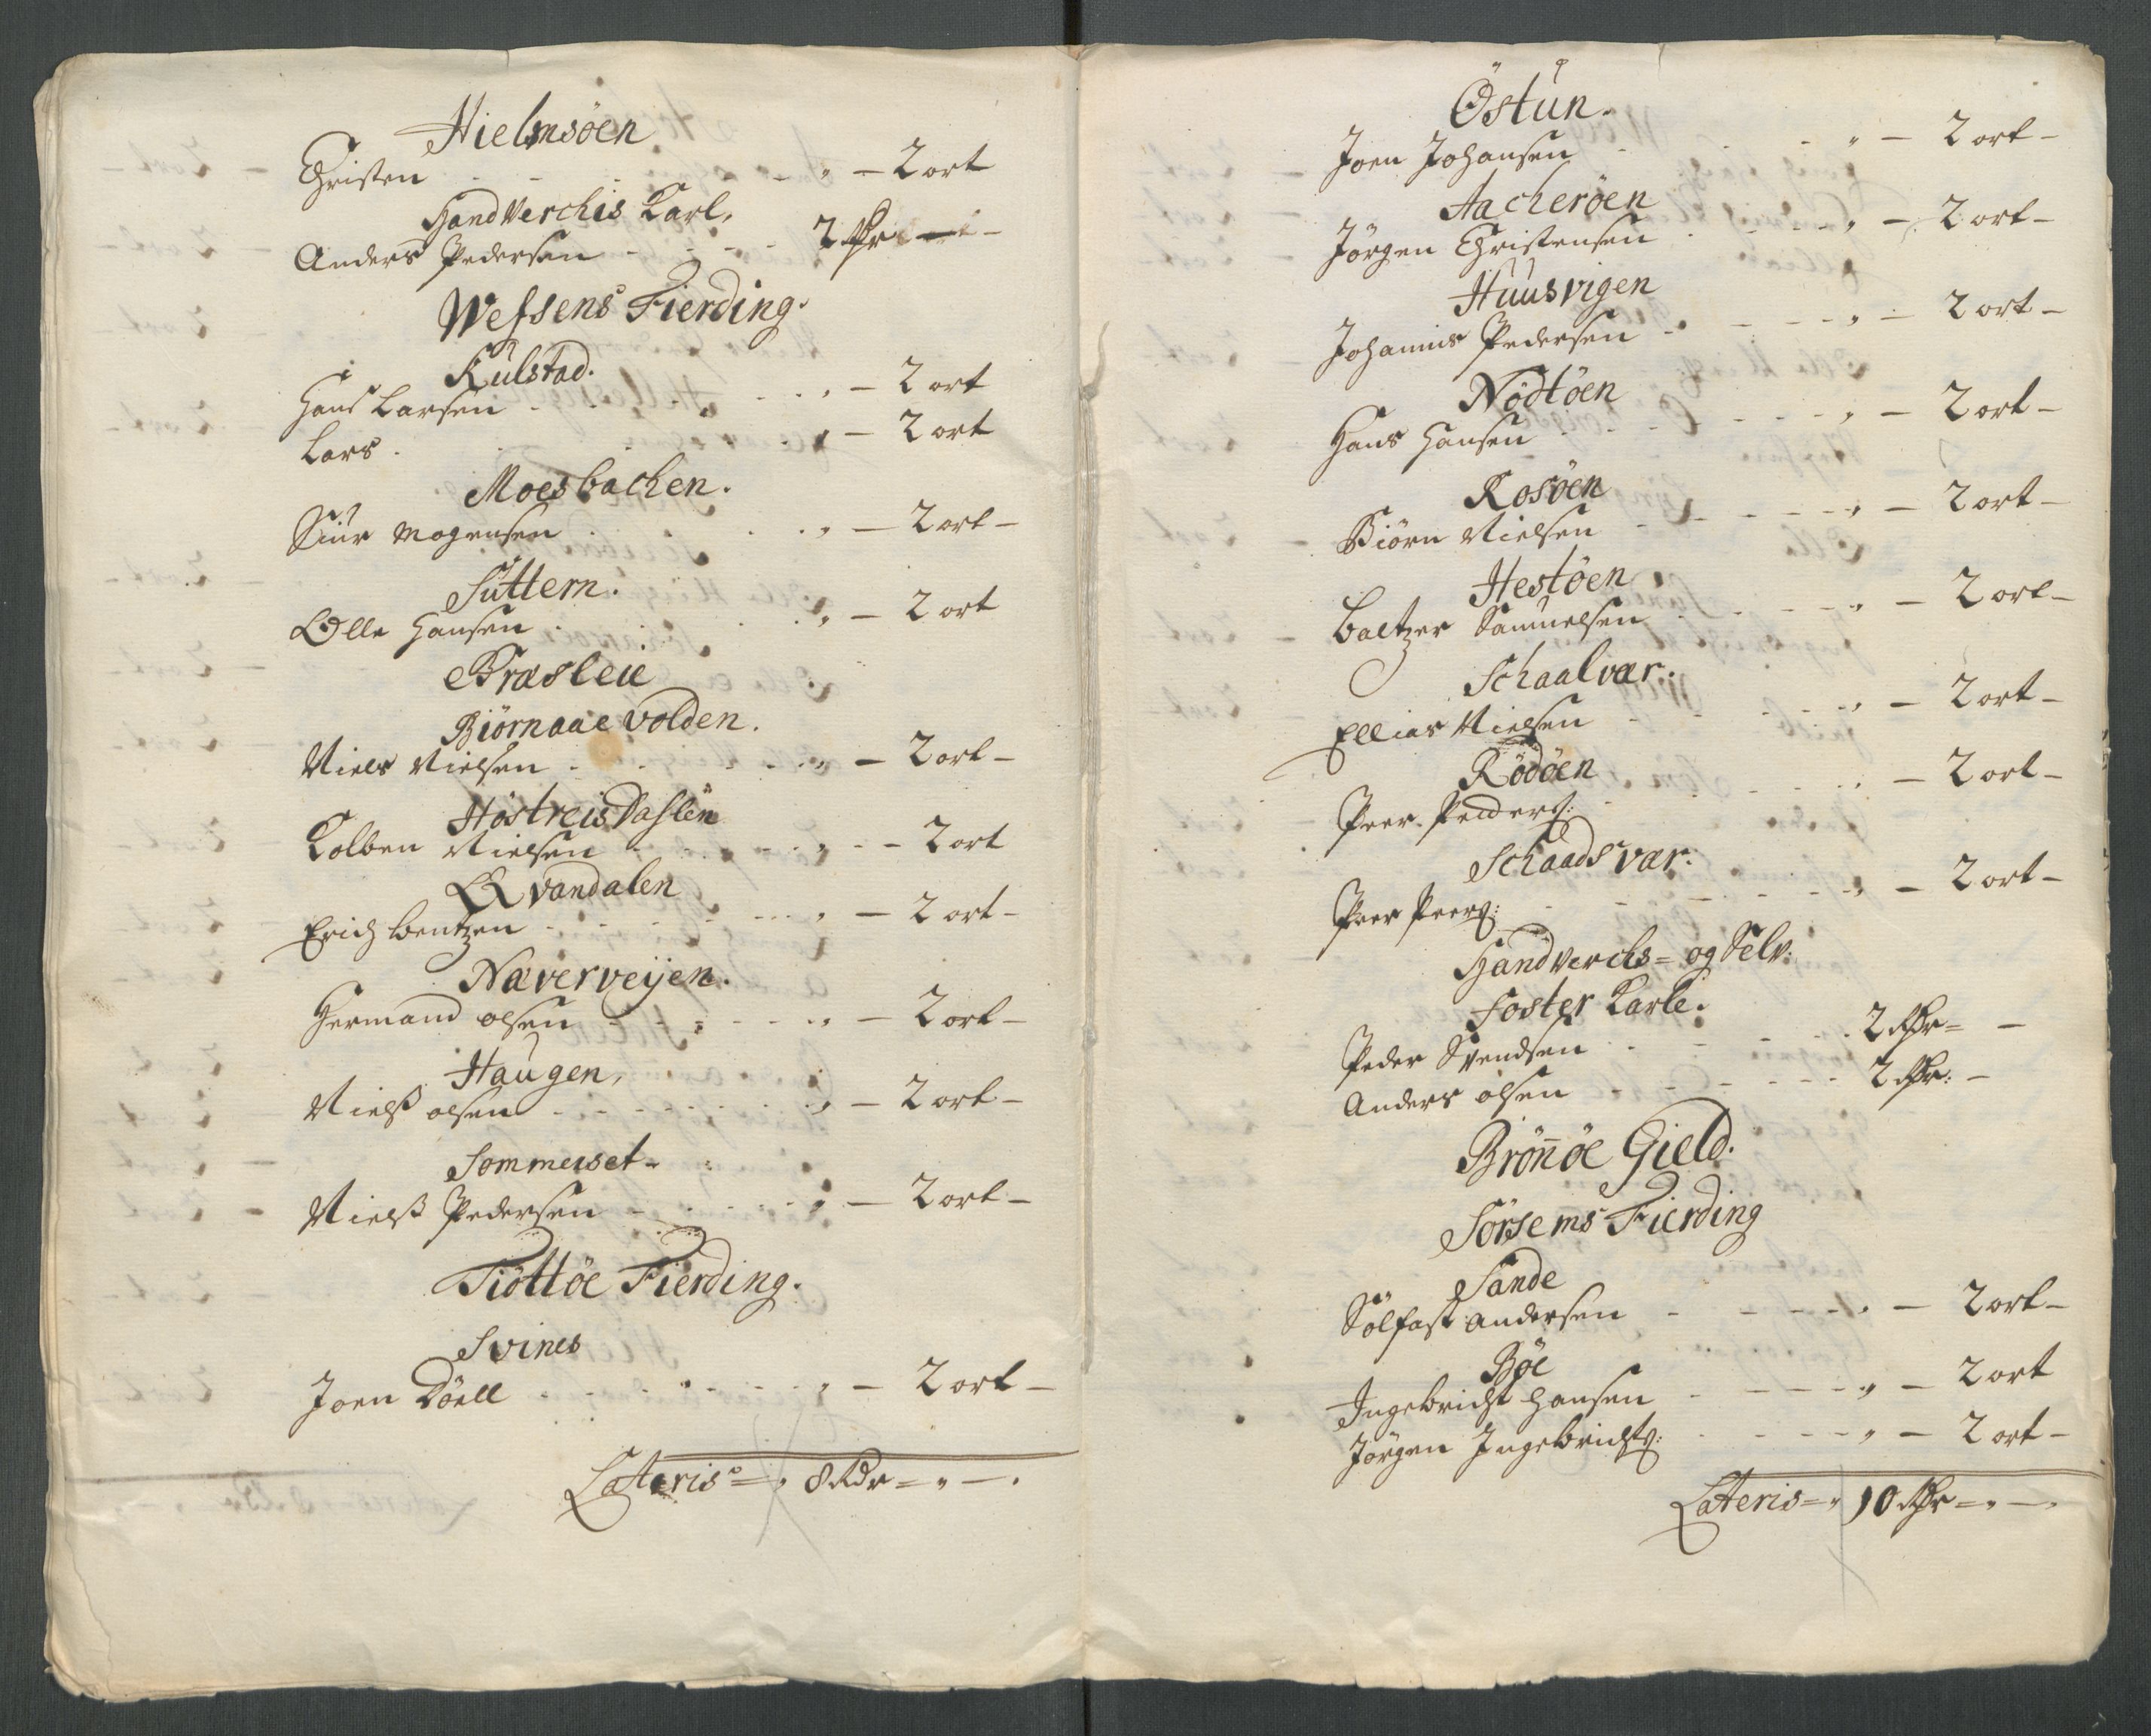 Hielmsöen
Christen - - - - " - 2 ort
Handverchis Karl,
Anders Pedersen - - - 2 Rdr - -
Wefsens Fierding.
Kulstad.
Hans Larsen - - - " - 2 ort
Lars . - - " - 2 ort
Moesbachen.
Siur Mogensen - - " - 2 ort -
Suttern.
Olle Hansen - - " - 2 ort
Bræsleie
Biörnaae volden.
Niels Nielsen - - - " - 2 ort -
Höstreis Daslen
Kolben Nielsen - - - " - - 2 ort
Qvandalen
Erich Bentzen - - - " - 2 ort -
Næverveijen.
Hermand olsen - - - " - 2 ort -
Haugen,
Nielß olsen - - - " - 2 ort -
Sommerset -
Nielß Pedersen - - - " - 2 ort -
Tiöttöe Fierding.
Svines
Joen Döell - - - " - 2 ort -
Lateris = " 8 Rdr = " - .
Östun.
Joen Johansen - - " - 2 ort -
Aacheröen
Jörgen Christensen - - - " - 2 ort -
Huusvigen
Johannis Pedersen - - - " - 2 ort -
Nödtöen
Hans Hansen - - - " - 2 ort -
Rosöen
Biörn Nielsen - - - " - 2 ort -
Hestöen
Baltzer Samuelsen - - - " - 2 ort -
Schaalvær.
Ellias Nielsen - - - " - 2 ort -
Rödöen
Peer Peders: - - - - 2 ort -
Schaadsvær.
Peer Peers: - - - " - 2 ort -
Handverchs = og Selv:
foster Karle.
Peder Svendsen - - - 2 Rdr = -
Anders olsen - - - 2 Rdr: -
Brönöe Gield.
Sörsems Fierding
Sande
Sölfast Andersen - - - " - 2 ort -
Böe
Ingebricht Hansen - - - " - 2 ort
Jörgen Ingebrichts: - - - " - 2 ort -
Lateris = " 10 Rdr = " - .